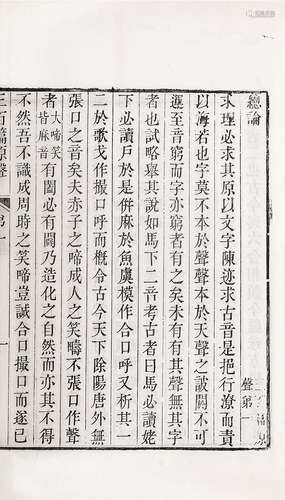 總論
聲第一
求理必求其原以文字陳迹求古音是挹行潦而責
以海若也字莫不本於聲聲本於天聲之諔闢不可
遷至音窮而字亦窮者有之矣未有有其聲無其字
者也試略舉其說如馬下二音考古者曰馬必讀姥
下必讀戶於是併麻於魚虞模作合口呼又析其一
二於歌戈作撮口呼而概令古今天下除陽唐外無
張口之音矣夫赤子之啼成人之笑疇不張口作聲
者大啼笑皆麻音有闔必有闢乃造化之自然而亦其不得
不然吾不識成周時之笑啼豈誠合口撮口而遂已
三百篇原聲
第一
一